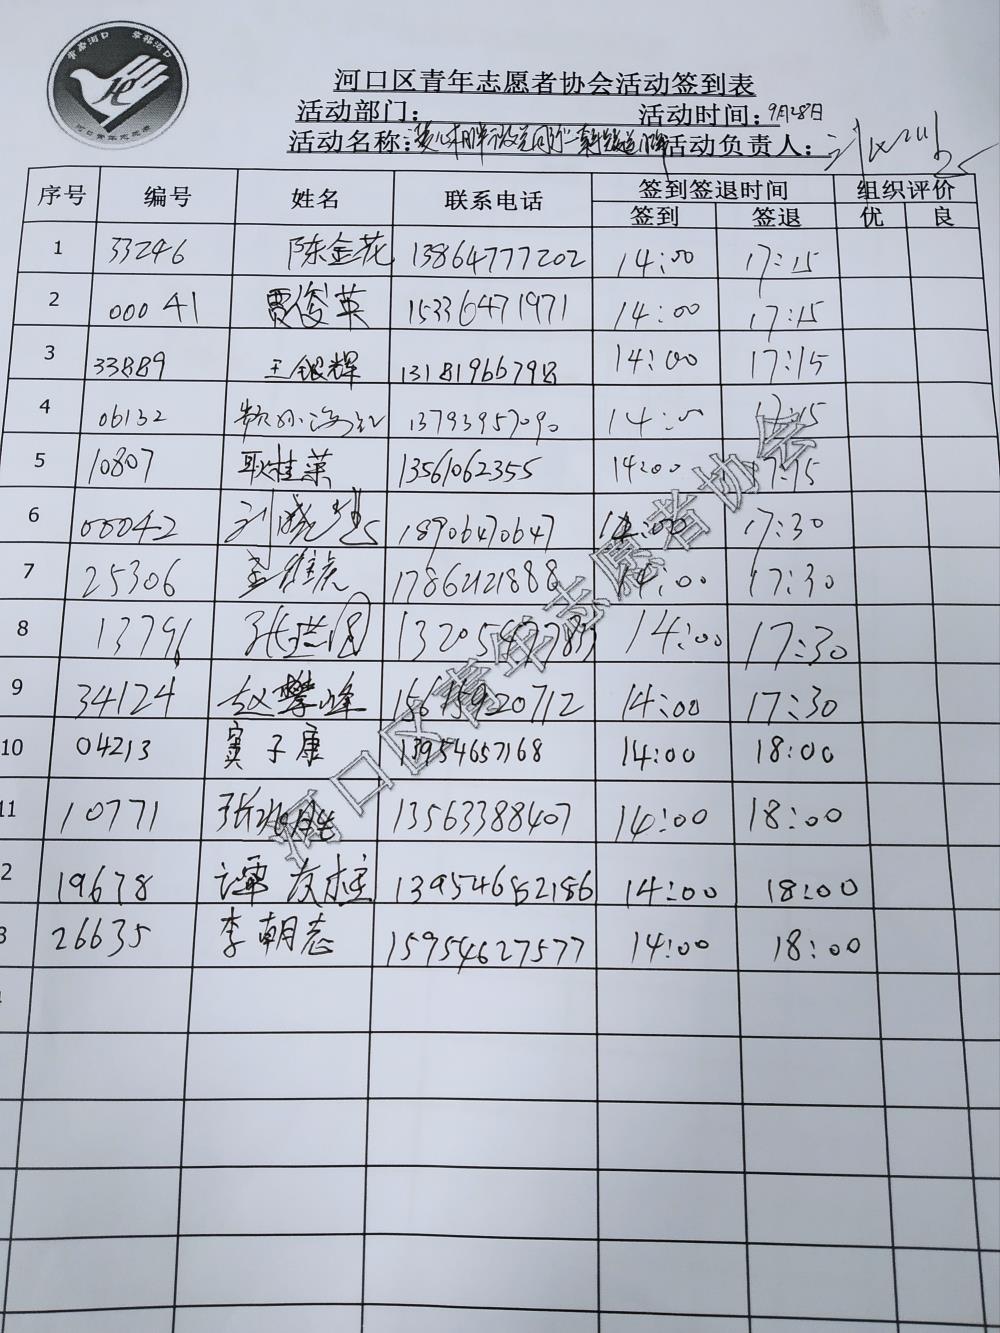 青春河口 幸福河口
河口青年志愿者
河口区青年志愿者协会活动签到表
活动部门: 活动时间: 9月28日
活动名称: 活动负责人:
序号 编号 姓名 联系电话 签到签退时间 组织评价
签到 签退 优 良
1 33246 陈金花 13864777202 14:00 17:15
2 00041 贾俊英 15336471971 14:00 17:15
3 33889 王银辉 13181966798 14:00 17:15
4 06132 13793957090 14:00 17:15
5 10807 耿桂英 13561062355 14:00 17:15
6 00042 18906470647 14:00 17:30
7 25306 17862121888 14:00 17:30
8 13791 14:00 17:30
9 34124 赵攀峰 15615920712 14:00 17:30
10 04213 窦子康 13954657168 14:00 18:00
11 10771 13563388407 14:00 18:00
2 19678 谭友柱 14:00 18:00
3 26635 李朝志 15954627577 14:00 18:00
河口区青年志愿者协会